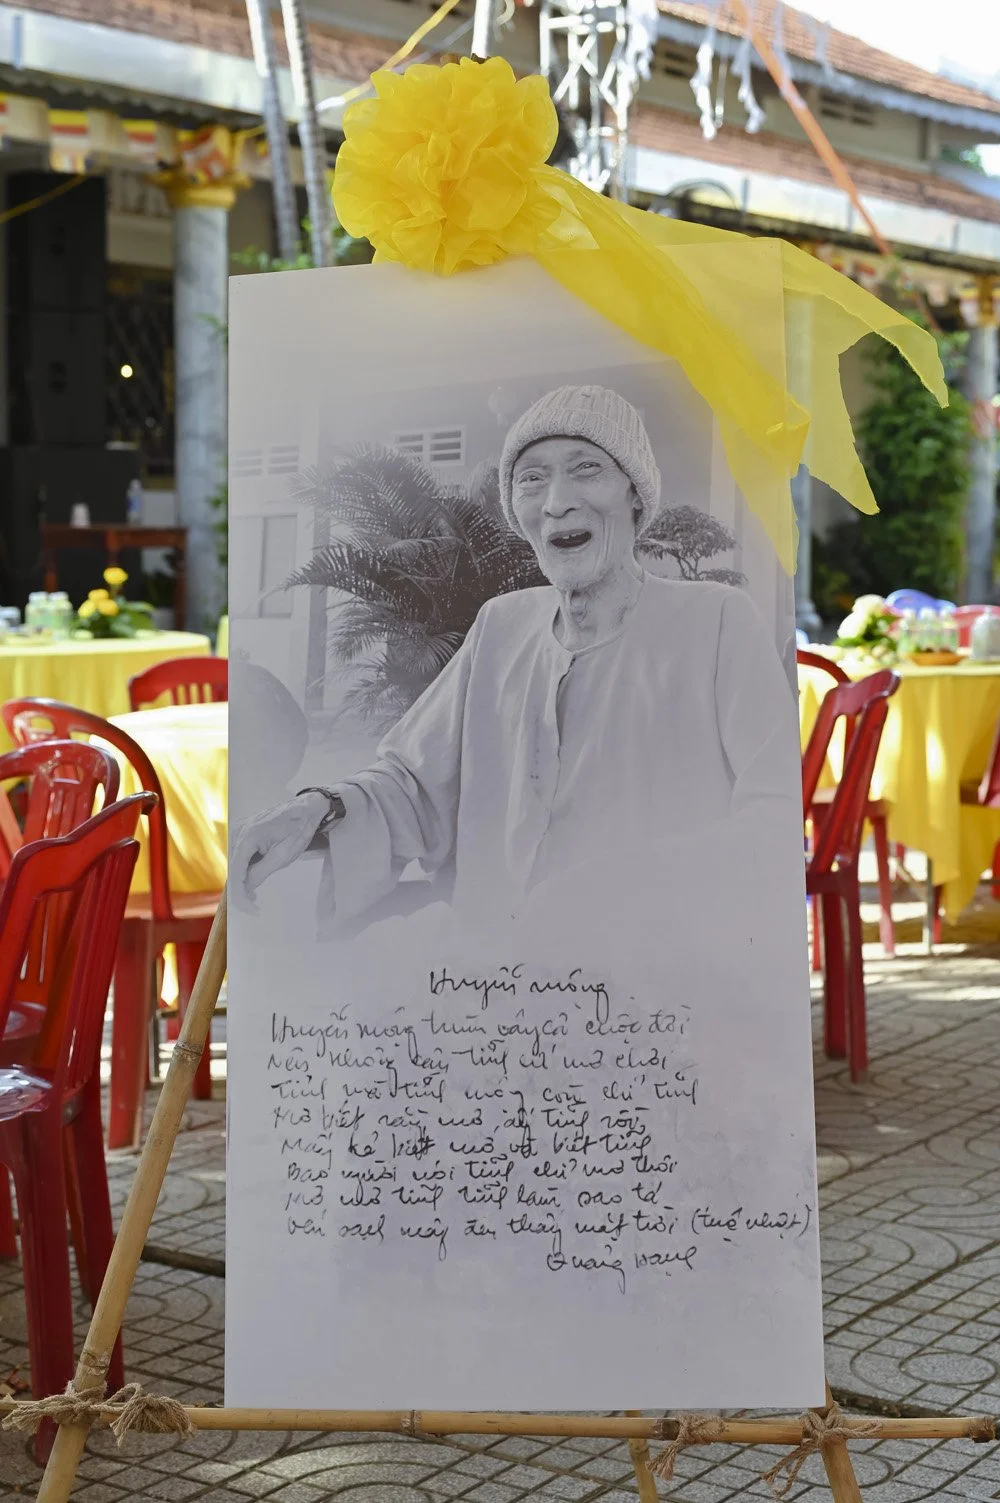 Huyễn mộng
Huyễn mộng trùm vây cả cuộc đời
Nên không cần tỉnh cứ mơ chơi
Tỉnh mơ tỉnh mộng còn chi tỉnh
Mơ biết rằng mơ ấy tỉnh rồi
Mấy kẻ biết mơ và biết tỉnh
Bao người nói tỉnh chỉ mơ thôi
Mơ mơ tỉnh tỉnh làm sao tá
Vén sạch mây đen thấy mặt trời (tuệ nhật)
Quảng Hạnh